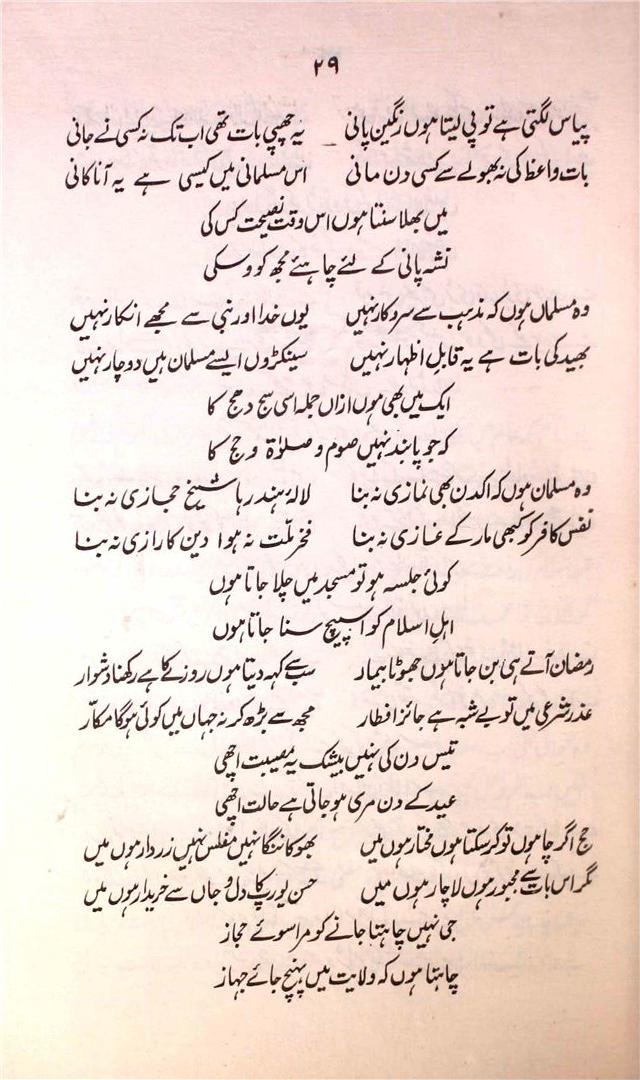 ۲۹
پیاس لگتی ہے تو پی لیتا ہوں رنگین پانی یہ چھپی بات تھی اب تک نہ کسی نے جانی
بات واعظ کی نہ بھولے سے کسی دن مانی اس مسلمانی میں کیسی ہے یہ آنا کانی
میں بھلا سنتا ہوں اس وقت نصیحت کس کی
نشہ پانی کے لئے چاہئے مجھ کو وسکی
وہ مسلماں ہوں کہ مذہب سے سروکار نہیں یوں خدا اور نبی سے مجھے انکار نہیں
بھید کی بات ہے یہ قابل اظہار نہیں سینکڑوں ایسے مسلمان ہیں دو چار نہیں
ایک میں بھی ہوں ازاں جملہ اسی سج دھج کا
کہ جو پابند نہیں صوم و صلوٰۃ و حج کا
وہ مسلمان ہوں کہ اکدن بھی نمازی نہ بنا لالۂ ہند رہا شیخ حجازی نہ بنا
نفس کافر کو کبھی مار کے غازی نہ بنا فخر ملّت نہ ہوا دین کا رازی نہ بنا
کوئی جلسہ ہو تو مسجد میں چلا جاتا ہوں
اہل اسلام کو اسپیچ سنا جاتا ہوں
رمضان آتے ہی بن جاتا ہوں جھوٹا بیمار سب سے کہہ دیتا ہوں روزے کا ہے رکھنا دشوار
عذر شرعی میں تو بے شبہ ہے جائز افطار مجھ سے بڑھ کر نہ جہاں میں کوئی ہوگا مکّار
تیس دن کی نہیں بیشک یہ مصیبت اچھی
عید کے دن مری ہو جاتی ہے حالت اچھی
حج اگر چاہوں تو کر سکتا ہوں مختار ہوں میں بھوکا ننگا نہیں مفلس نہیں زردار ہوں میں
مگر اس بات سے مجبور ہوں لاچار ہوں میں حسن یورپ کا دل و جاں سے خریدار ہوں میں
جی نہیں چاہتا جانے کو مرا سوئے حجاز
چاہتا ہوں کہ ولایت میں پہنچ جائے جہاز